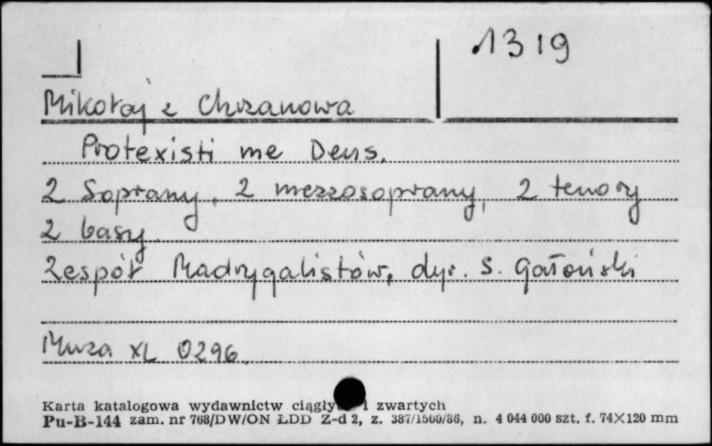 1319
Mikołaj z Chrzanowa
Protexisti me Deus.
2 Soprany, 2 mezzosoprany, 2 tenory
2 basy
Zespół Madrygalistów, dyr. S. Gałoński
Muza XL 0296
Karta katalogowa wydawnictw ciągłych i zwartych
Pu-B-144 zam. nr 768/DW/ON ŁDD Z-d 2, z. 387/1500/86, n. 4 044 000 szt. f. 74×120 mm